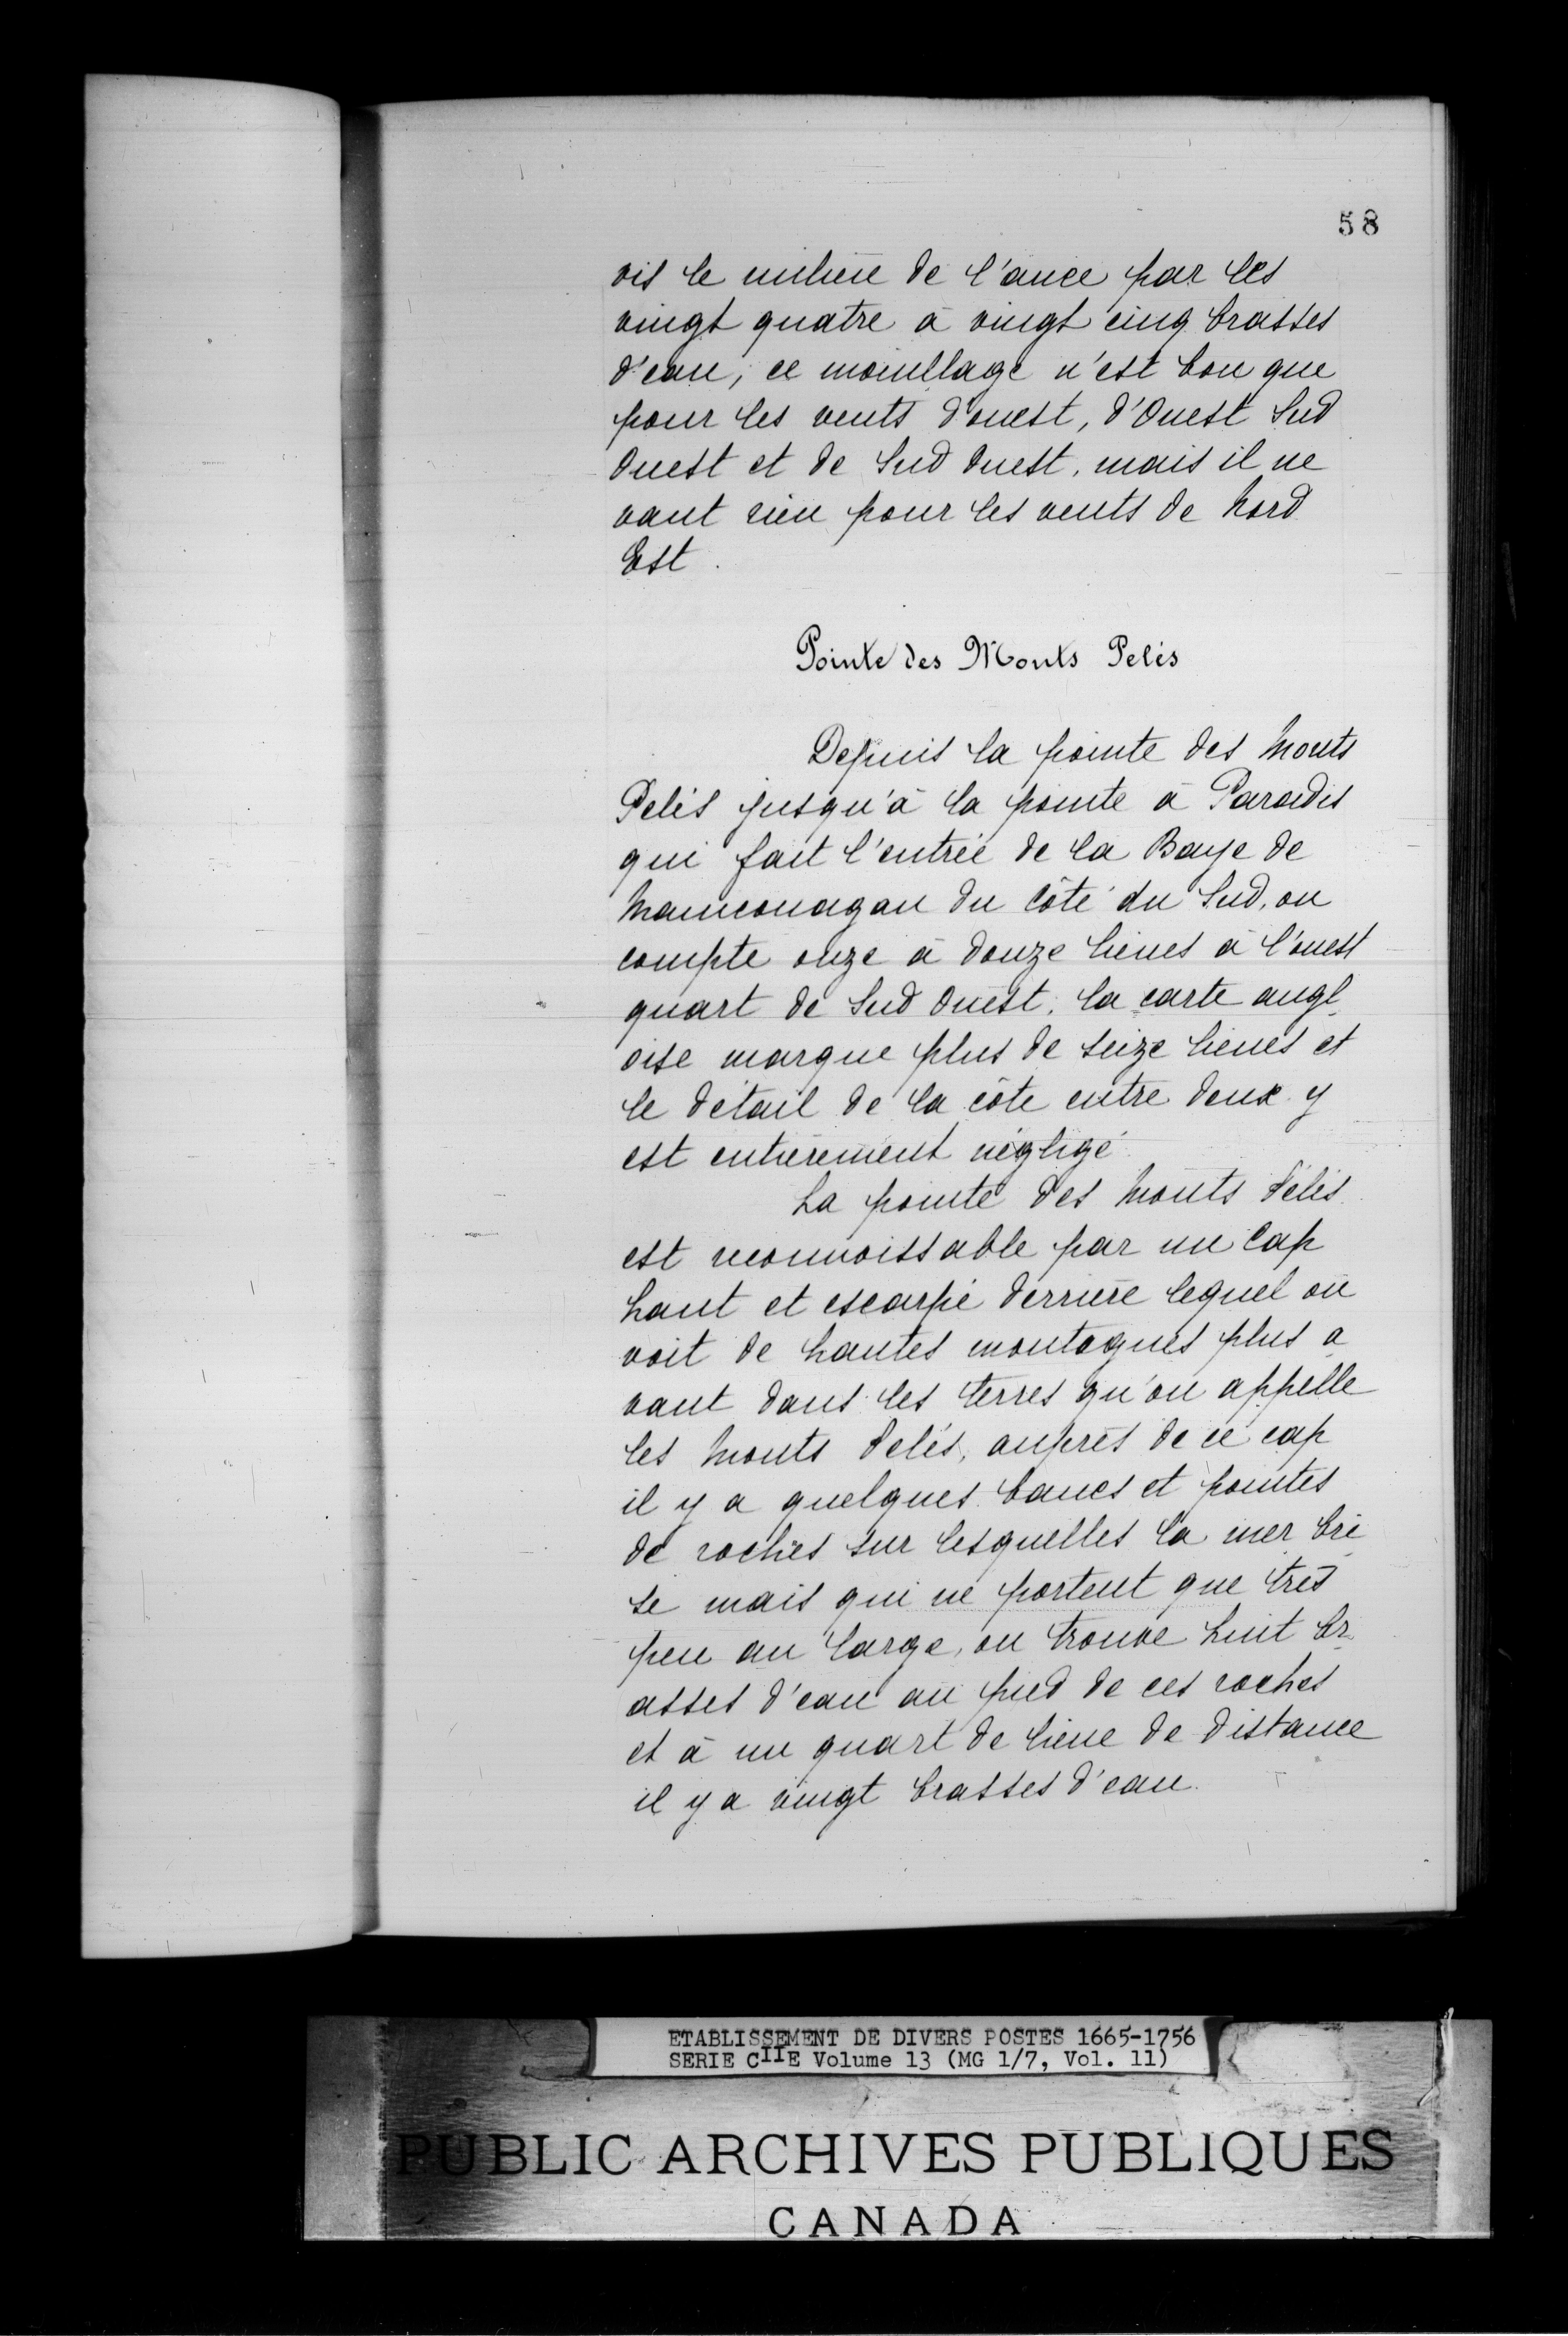 58
vis le milieu de l'ance par les
vingt quatre à vingt cinq brasses
d'eau, ce mouillage n'est bon que
pour les vents d'ouest, d'Ouest Sud
Ouest et de Sud Ouest, mais il ne
vaut rien pour les vents de Nord
Est.
Pointe des Monts Pelés
Depuis la pointe des Monts
Pelés jusqu'à la pointe à Paradis
qui fait l'entrée de la Baye de
Manicouagan du Côté du Sud, on
compte onze à douze lieues à l'ouest
quart de Sud Ouest. la carte angl
oise marque plus de seize lieues et
le détail de la côte entre deux y
est entièrement négligé
La pointe des Monts Pelés
est reconnoissable par un Cap
haut et escarpé derrière lequel on
voit de hautes montagnes plus a
vant dans les terres qu'on appelle
les Monts Pelés, auprès de ce cap
il y a quelques bancs et pointes
de roches sur lesquelles la mer bri
se mais qui ne portent que très
peu au large, on trouve huit br
asses d'eau au pied de ces roches
et à un quart de lieue de distance
il y a vingt brasses d'eau.
ETABLISSEMENT DE DIVERS POSTES 1665-1756
SERIE CIIE Volume 13 (MG 1/7, Vol. 11)
PUBLIC ARCHIVES PUBLIQUES
CANADA